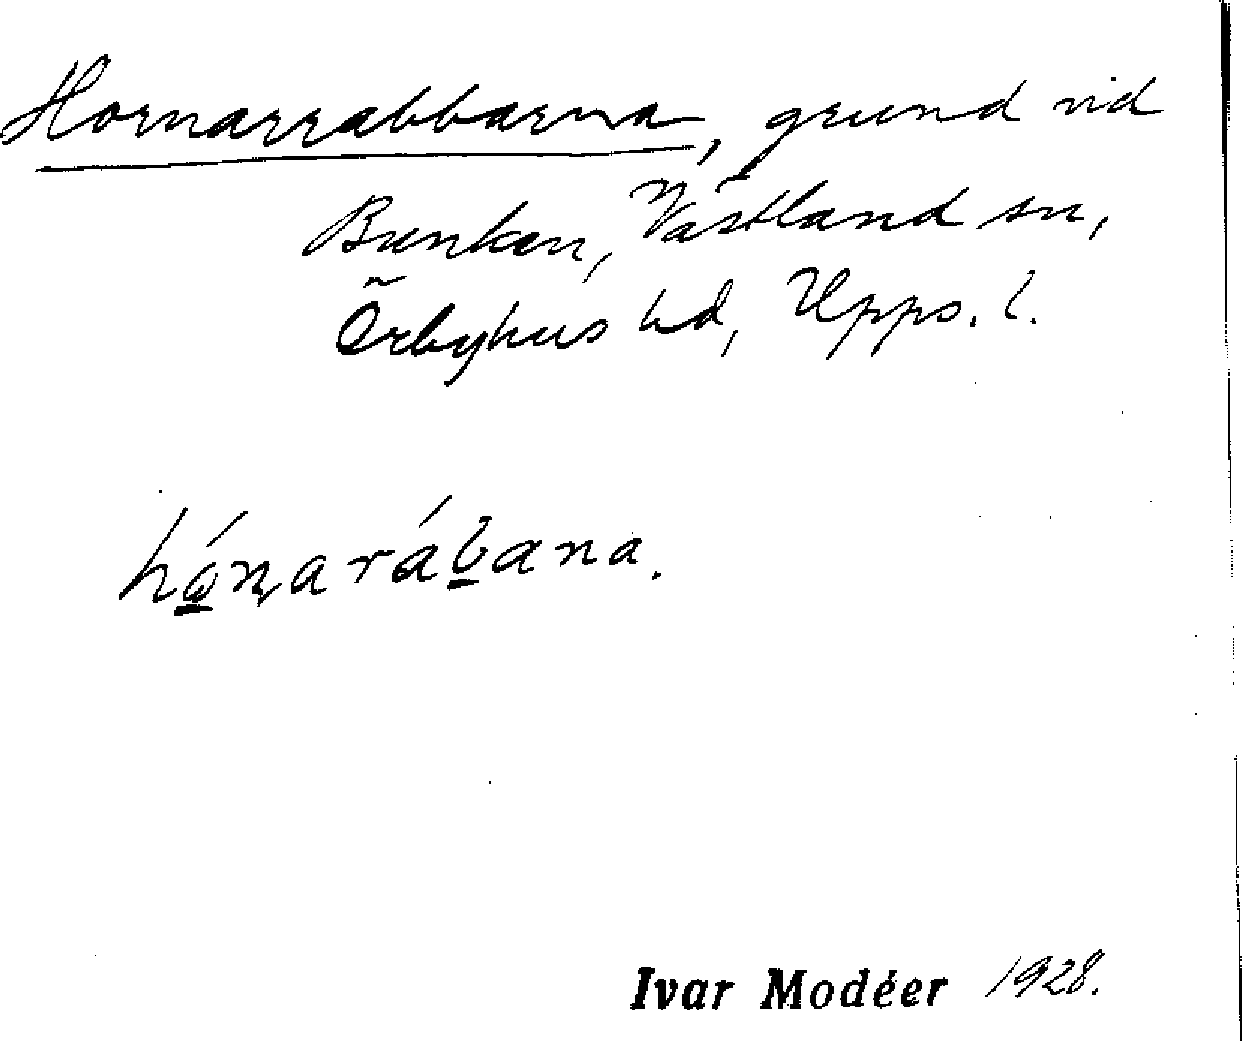 Hornarrabbarna, grund vid
Bunken, Västland sn,
Örbyhus hd, Upps. l.
hǫ́n̨arábana.
Ivar Modéer 1928.